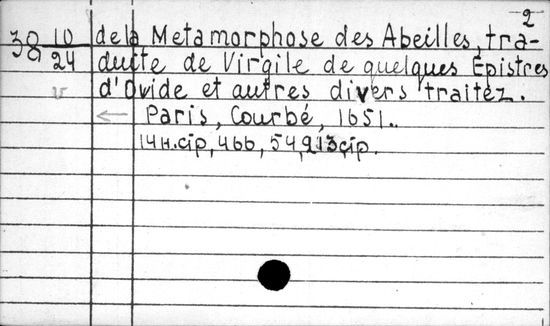 2
38 10/24 dela Metamorphose des Abeilles, tra-
duite de Virgile de quelques Epistres
d'Ovide et autres divers traitez.
Paris, Courbé, 1651..
14н.cip, 466, 54, 213, cip.